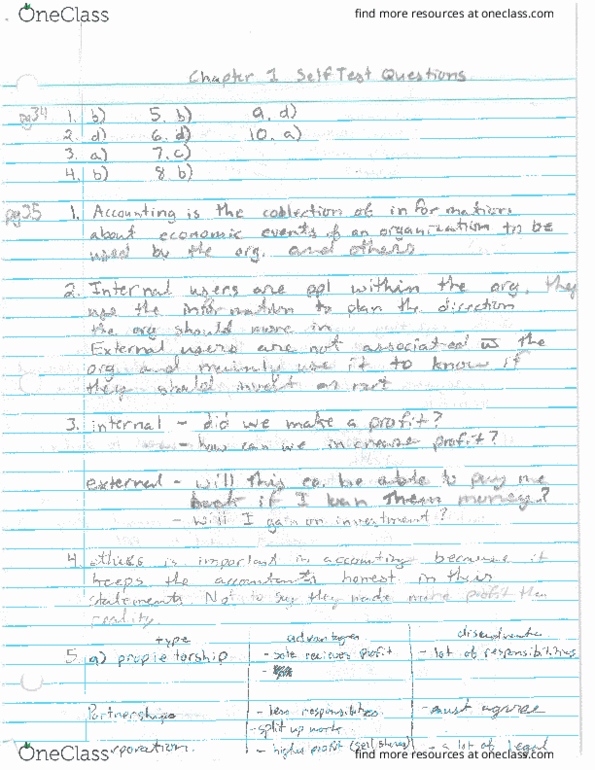 OneClass
find more resources at oneclass.com
Chapter 1 Self Test Questions
pg34 1. b) 5. b) 9. d)
2. d) 6. d) 10. a)
3. a) 7. c)
4. b) 8. b)
pg35 1. Accounting is the collection of informations
about economic events of an organization to be
used by the org. and others
2. Internal users are ppl within the org. they
use the information to plan the direction
the org should move in.
External users are not associated w the
org and mainly use it to know if
they should invest or not
3. internal - did we make a profit?
- how can we increase profit?
external - will this co. be able to pay me
back if I loan them money?
- will I gain on investment?
4. ethics is important in accounting because it
keeps the accountants honest in their
statements. Not to say they made more profit than
reality.
type advantages
5. a) propietorship - sole reciever profit - lot of responsibilities
-
Partnerships - less responsibilites - must agree
- split up work
orporation. - higher profit (sell shares) - a lot of legal
OneClass
find more resources at oneclass.com